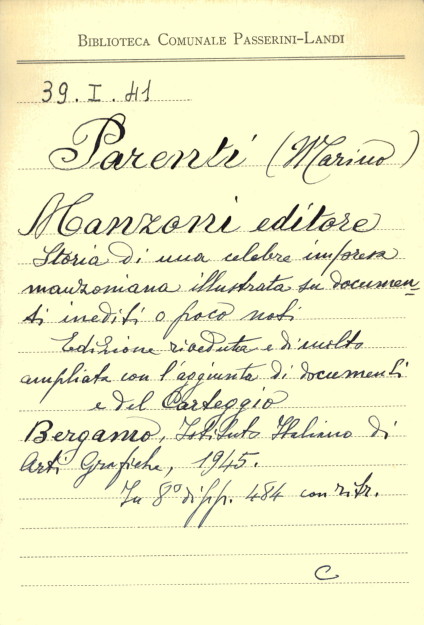 BIBLIOTECA COMUNALE PASSERINI-LANDI
39. I. 41
Parenti (Marino)
Manzoni editore
Storia di una celebre impresa
manzoniana illustrata su documen-
ti inediti o poco noti
Edizione riveduta e di molto
ampliata con l'aggiunta di documenti
e del Carteggio
Bergamo, Istituto Italiano di
Arti Grafiche, 1945.
In 8º di pp. 484 con ritr.
C